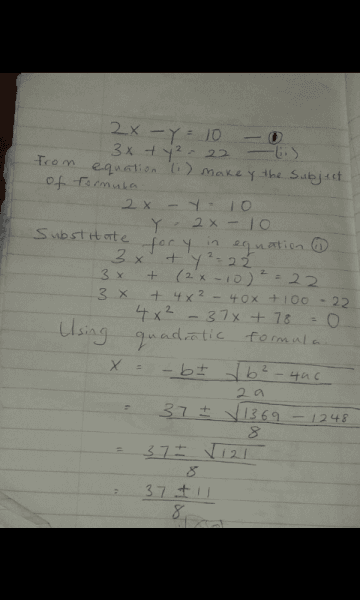 2x - y = 10 — (i)
3x + y² = 22 — (ii)
From equation (i) make y the subject
of formula
2x - y = 10
y = 2x - 10
Substitute for y in equation (ii)
3x + y² = 22
3x + (2x - 10)² = 22
3x + 4x² - 40x + 100 = 22
4x² - 37x + 78 = 0
Using quadratic formula
x = -b ± √b² - 4ac
2a
= 37 ± √1369 - 1248
8
= 37 ± √121
8
= 37 ± 11
8